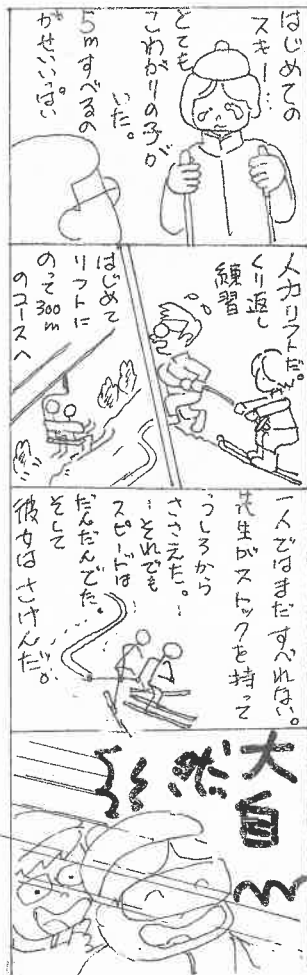 はじめての
スキー…
とても
こわがりの子が
いた。
5mすべるの
がせいいっぱい
人力リフトだ。
くり返し
練習
はじめて
リフトに
のって300m
のコースへ
一人ではまだすべれない。
先生がストックを持って
うしろから
ささえた。…
…それでも
スピードは
だんだんでた。
そして
彼女はさけんだッ。
大自
然